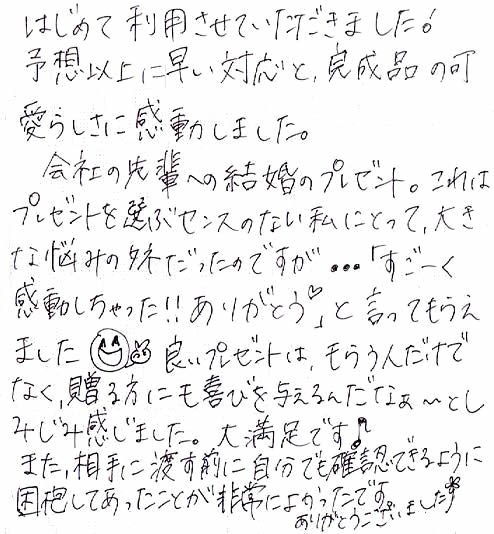 はじめて利用させていただきました!
予想以上に早い対応と、完成品の可
愛らしさに感動しました。
会社の先輩への結婚のプレゼント。これは
プレゼントを選ぶセンスのない私にとって、大き
な悩みの種だったのですが…「すごーく
感動しちゃった!!ありがとう♡」と言ってもらえ
ました 良いプレゼントは、もらう人だけで
なく、贈る方にも喜びを与えるんだなぁ〜とし
みじみ感じました。大満足です♪
また、相手に渡す前に自分でも確認できるように
困枹してあったことが非常によかったです
ありがとうございました